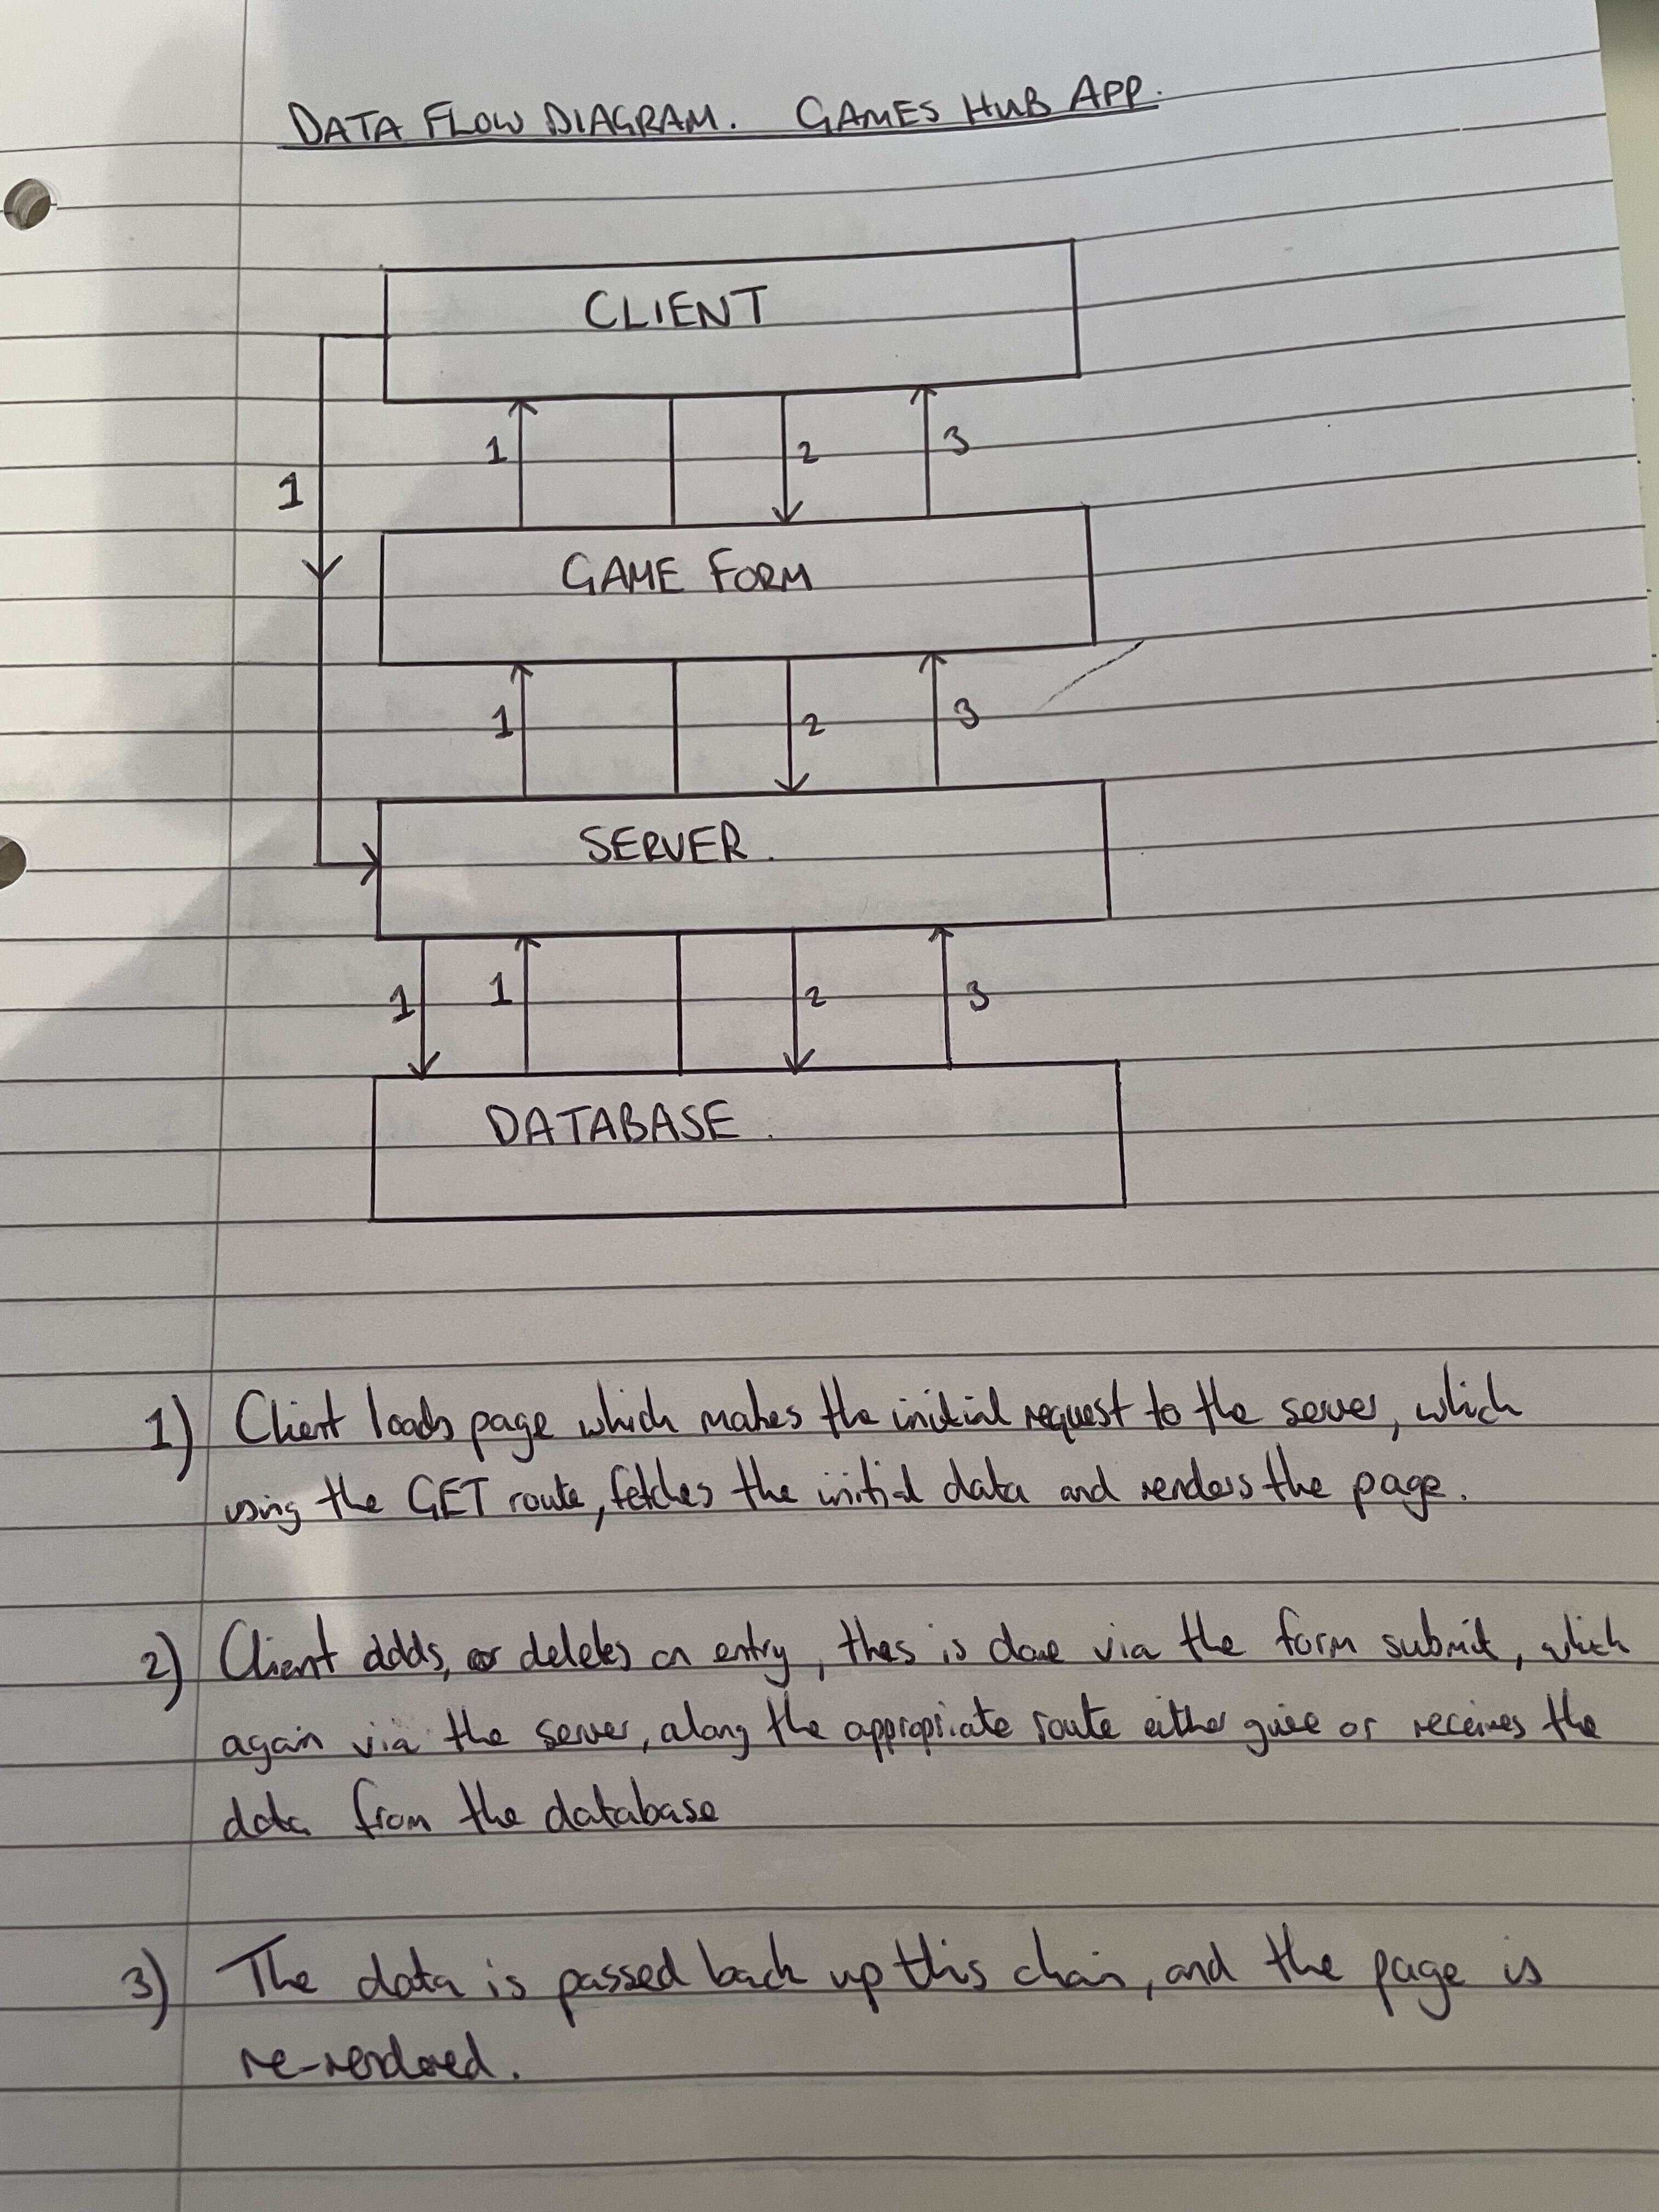 DATA FLOW DIAGRAM. GAMES HUB APP.
CLIENT
1
1
2
3
GAME FORM
1
2
3
SERVER.
1
1
2
3
DATABASE.
1) Client loads page which makes the initial request to the server, which
using the GET route, fetches the initial data and renders the page.
2) Client adds, or deletes an entry, this is done via the form submit, which
again via the server, along the appropriate route either give or receives the
data from the database
3) The data is passed back up this chain, and the page is
re-rendered.